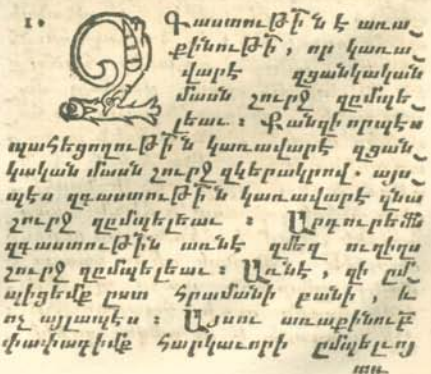 1. Զգաստութի՛ն է առա֊
քինութի՛, որ կառա֊
վարէ զցանկական
մասն շուրջ զըմպե֊
լեաւ ։ Քանզի որպէս
պահեցողութի՛ն կառավարէ զցան֊
կական մասն շուրջ զկերակրով. այս֊
պէս զգաստութի՛ն կառավարէ զնա
շուրջ զըմպելեաւ ։ Արդ ուրեմն
զգաստութի՛ն առնէ զմեզ ուղիղս
շուրջ զըմպելեաւ ։ Առնէ, զի ըմ֊
պիցեմք ըստ հրամանի բանի, և
ոչ այլապէս ։ Այսու առաքինութբ
փափագիմք հարկաւորի ըմպելւոյ